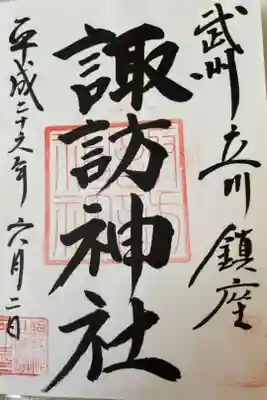 武州立川鎮座
諏訪神社
平成二十九年六月二日